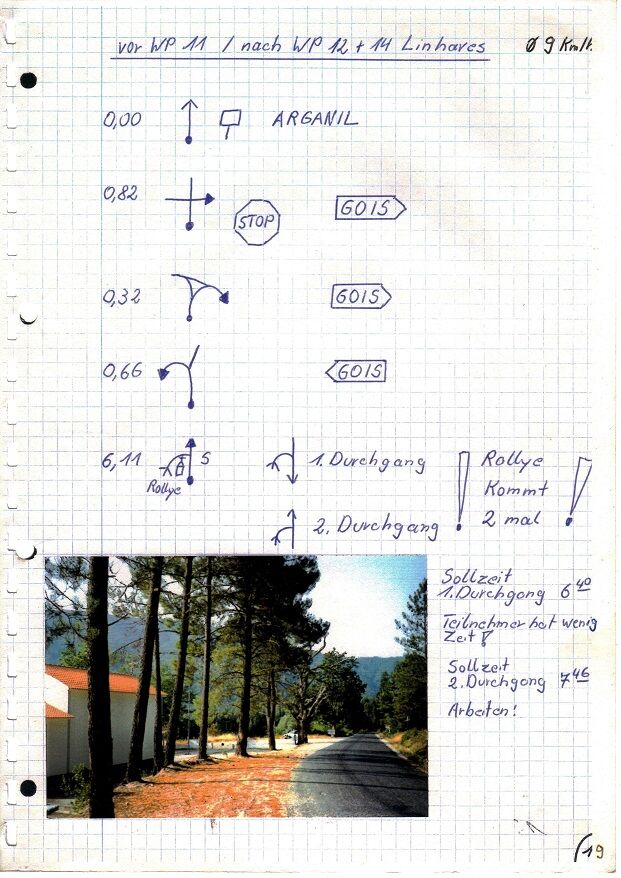 vor WP 11 / nach WP 12 + 14 Linhares Ø 9 Km/h.
0,00 ARGANIL
0,82 STOP GOIS
0,32 GOIS
0,66 GOIS
6,11 S 1. Durchgang Rollye
Rollye Kommt
2. Durchgang 2 mal
Sollzeit
1. Durchgong 6 40
Teilnehmer hat wenig
Zeit!
Sollzeit
2. Durchgong 7 46
Arbeiten!
19